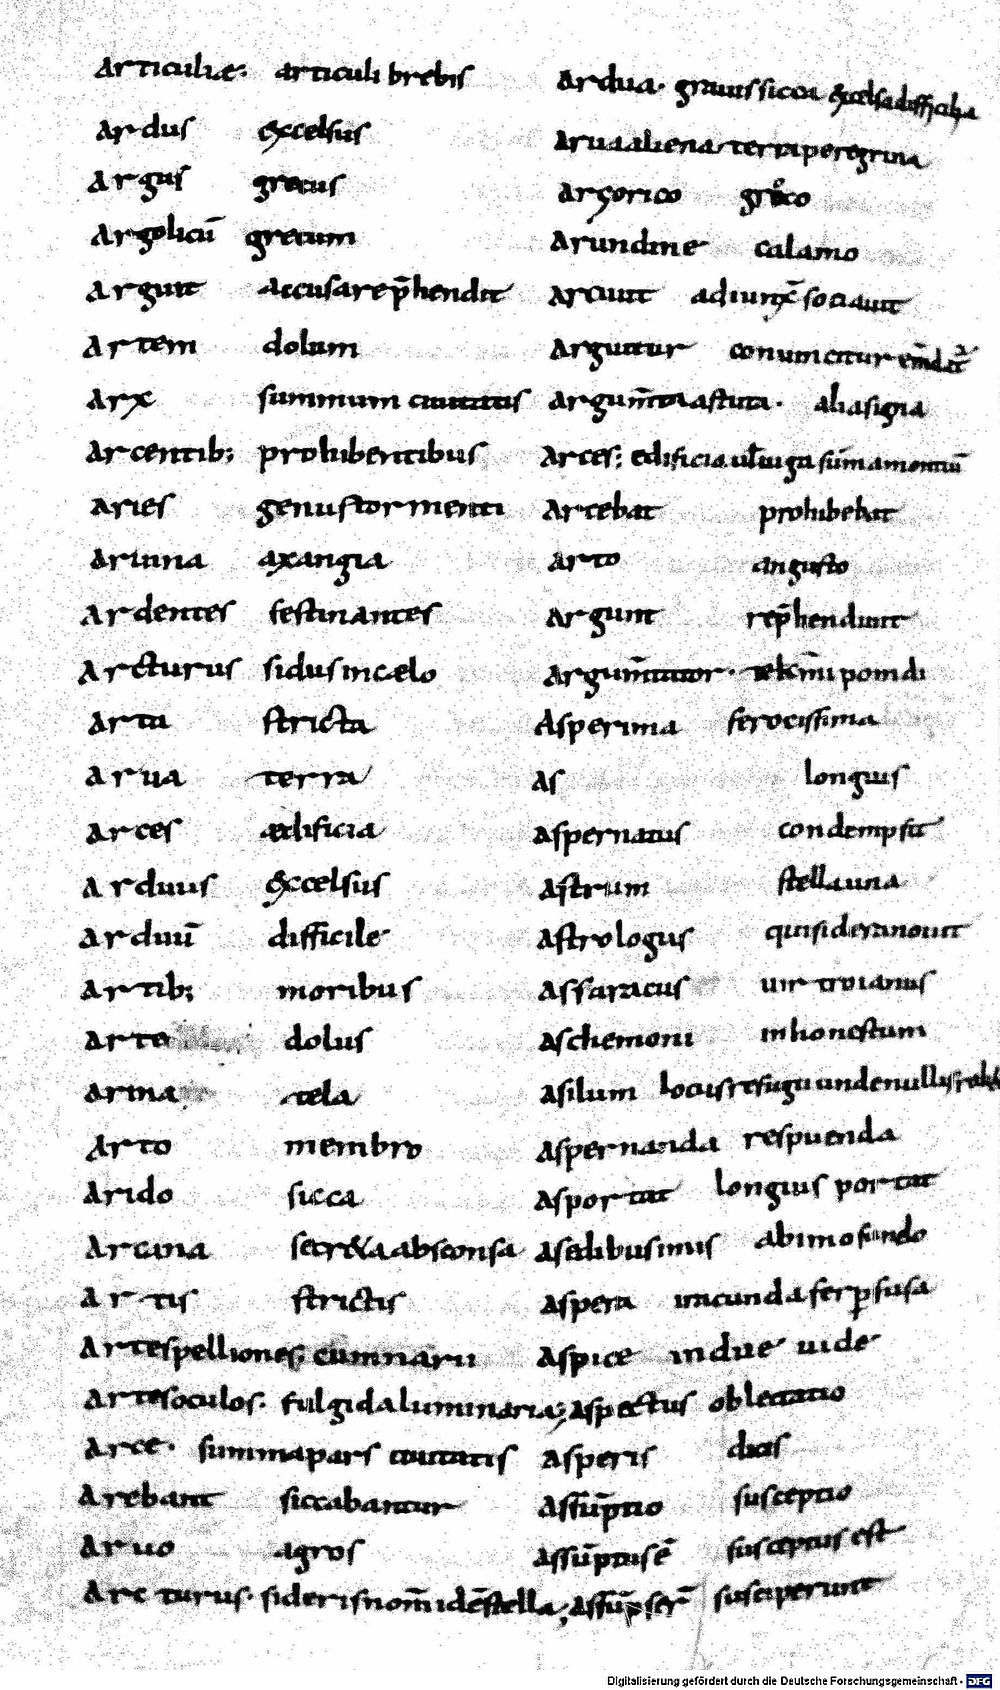 Articuliae· articuli brebis
Ardus excelsus
Argus grecus
Argolicū grecum
Arguit accusat rep̄hendit
Artem dolum
Arx summum ciuitatis
Arcentib; prohibentibus
Aries genus tormenti
Aruina axangia
Ardentes festinantes
Arcturus sidus in caelo
Arta stricta
Arua terra
Arces aedificia
Arduus excelsus
Arduū difficile
Artib; moribus
Arte dolus
Arma tela
Arto membro
Arido sicca
Arcana secreta absconsa
Artis strictis
Artes pelliones;
Artes oculos· fulgida luminaria;
Arce· summa pars ciuitatis
Arebant siccabantur
Aruo agros
Arcturus· sideris nom̄ id ē stella;
Ardua· grauis sicca excelsa difficilia
Arua aliena terra peregrina
Argorico greco
Arundine calamo
Arcuit adiunx̄ sociauit
Arguitur conuincitur
Argum̄ta astuta· alia signa
Arces; edificia uĺ iuga sūma montiū
Arcebat prohibebat
Arto angusto
Argunt rep̄hendunt
Argum̄tatur·
Asperima ferocissima
As longius
Aspernatus condempsit
Astrum stella una
Astrologus qui sidera nouit
Assaracus uir troianus
Aschemoni inhonestum
Asilum locus refugii unde nullus
Aspernanda respuenda
Asportat longius portat
A sedibus imis ab imo fundo
Aspera iracunda
Aspice indue uide
Aspectus oblectatio
Asperis
Assūptio susceptio
Assūptus ē susceptus est
Assūpser̄ susciperunt
Digitalisierung gefördert durch die Deutsche Forschungsgemeinschaft - DFG